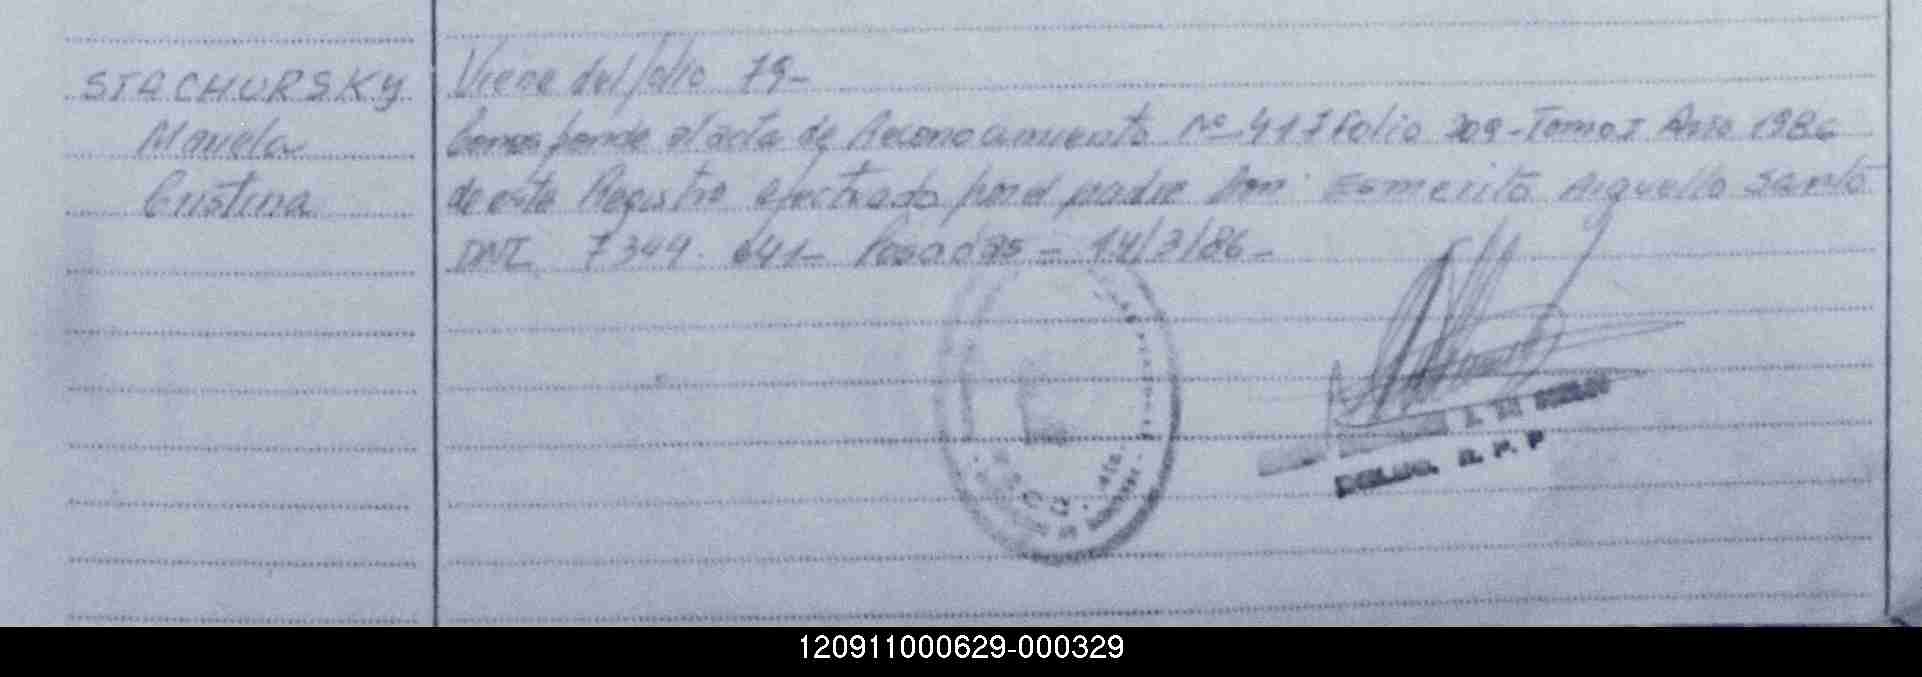 STACHURSKY
Mariela
Cristina
Viene del folio 79-
Corresponde al acta de Reconocimiento Nº 417 Folio 209 - Tomo I Año 1986
de este Registro efectuado por el padre Don: Esmerito Arguello Santo
DNI 7349.641- Posadas - 14/3/86-
R. P. P
120911000629-000329